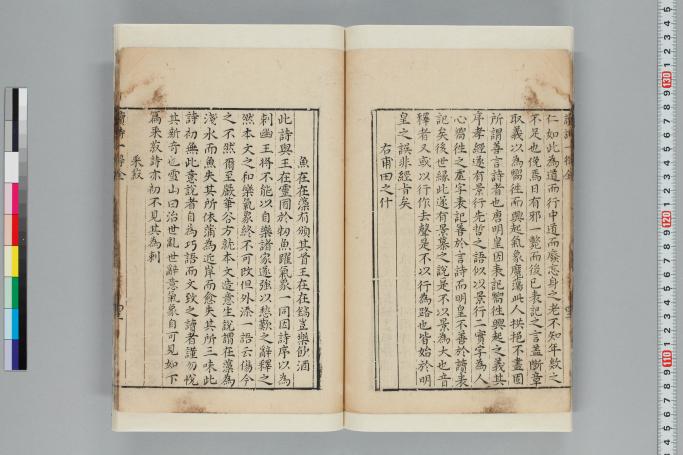 仁如此為道而行中道而廢忘身之老不知年數之
不足也俛焉日有孳孳斃而後已表記之言蓋斷章
取義以為嚮徃而興起氣象魔蕩此人拱挹不盡固
所謂善言詩者也唐明皇因表記嚮徃興起之義其
序孝經遂有景行先哲之語似以景行二實字為人
心嚮徃之虛字表記善於言詩而明皇不善於讀表
記矣後世緣此遂有景慕之說是不以景為大也音
釋者又或以行作去聲是不以行為路也皆始於明
皇之誤非經旨矣
右甫田之什
魚在在藻有頒其首王在在鎬豈樂飲酒
此詩與王在靈囿於牣魚躍氣象一同因詩序以為
刺幽王將不能以自樂諸家遂強以悲歎之辭釋之
然本文之和樂氣象終不可改但外添一語云傷今
之不然爾至嚴華谷方就本文造意生說謂在藻為
淺水而魚失其所依蒲為近岸而愈失其所三味此
詩初無此意說者自為巧語而文致之讀者謹勿悅
其新奇也雪山曰治世亂世辭意氣象自可見如下
篇采菽詩亦初不見其為刺
采菽